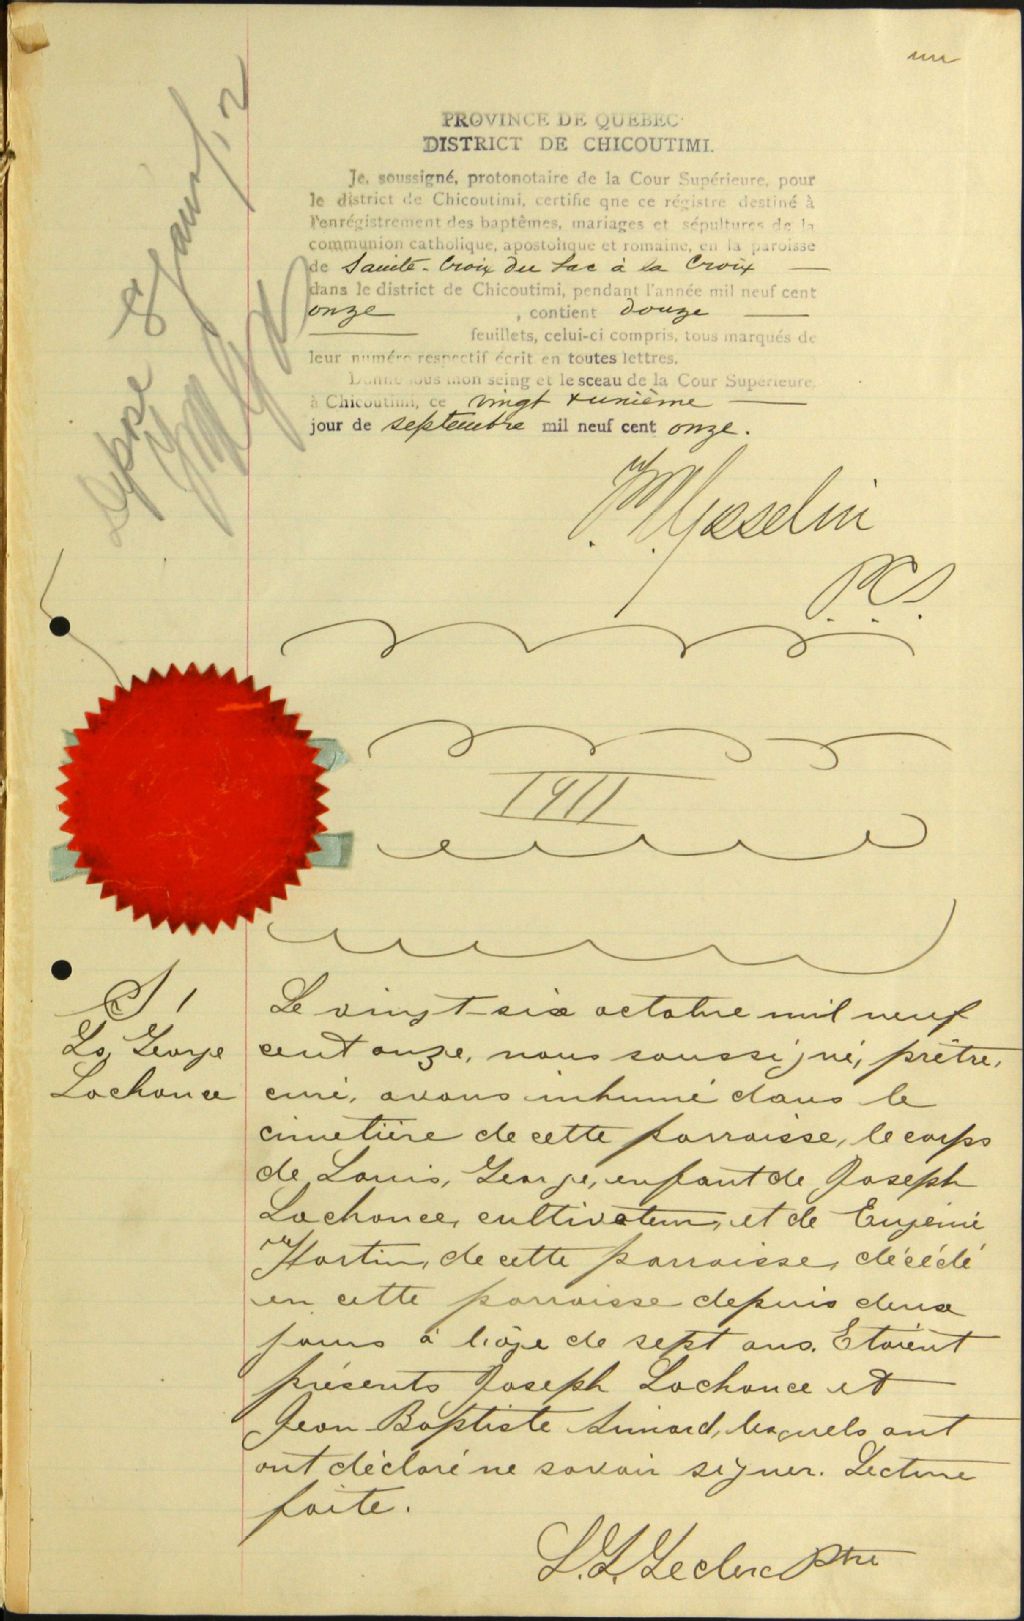 un
PROVINCE DE QUEBEC
DISTRICT DE CHICOUTIMI.
Je, soussigné, protonotaire de la Cour Supérieure, pour
le district de Chicoutimi, certifie qne ce régistre destiné à
l'enrégistrement des baptêmes, mariages et sépultures de la
communion catholique, apostolique et romaine, en la paroisse
de Sainte-Croix du Lac à la Croix
dans le district de Chicoutimi, pendant l'année mil neuf cent
onze, contient douze
feuillets, celui-ci compris, tous marqués de
leur numéro respectif écrit en toutes lettres.
Donné sous mon seing et le sceau de la Cour Supérieure,
à Chicoutimi, ce vingt & unième
jour de septembre mil neuf cent onze.
Gosselin
P.C.S.
1911
S 1
Ls, George
Lachance
Le vingt-six octobre mil neuf
cent onze, nous soussigné, prêtre,
curé, avons inhumé dans le
cimetière de cette parroisse, le corps
de Louis, George, enfant de Joseph
Lachance, cultivateur, et de Eugénie
Martin, de cette parroisse, décédé
en cette parroisse depuis deux
jours à l'âge de sept ans. Etaient
présents Joseph Lachance et
Jean-Baptiste Simard, lesquels ont
ont déclaré ne savoir signer. Lecture
faite.
L.G. Leclerc Ptre